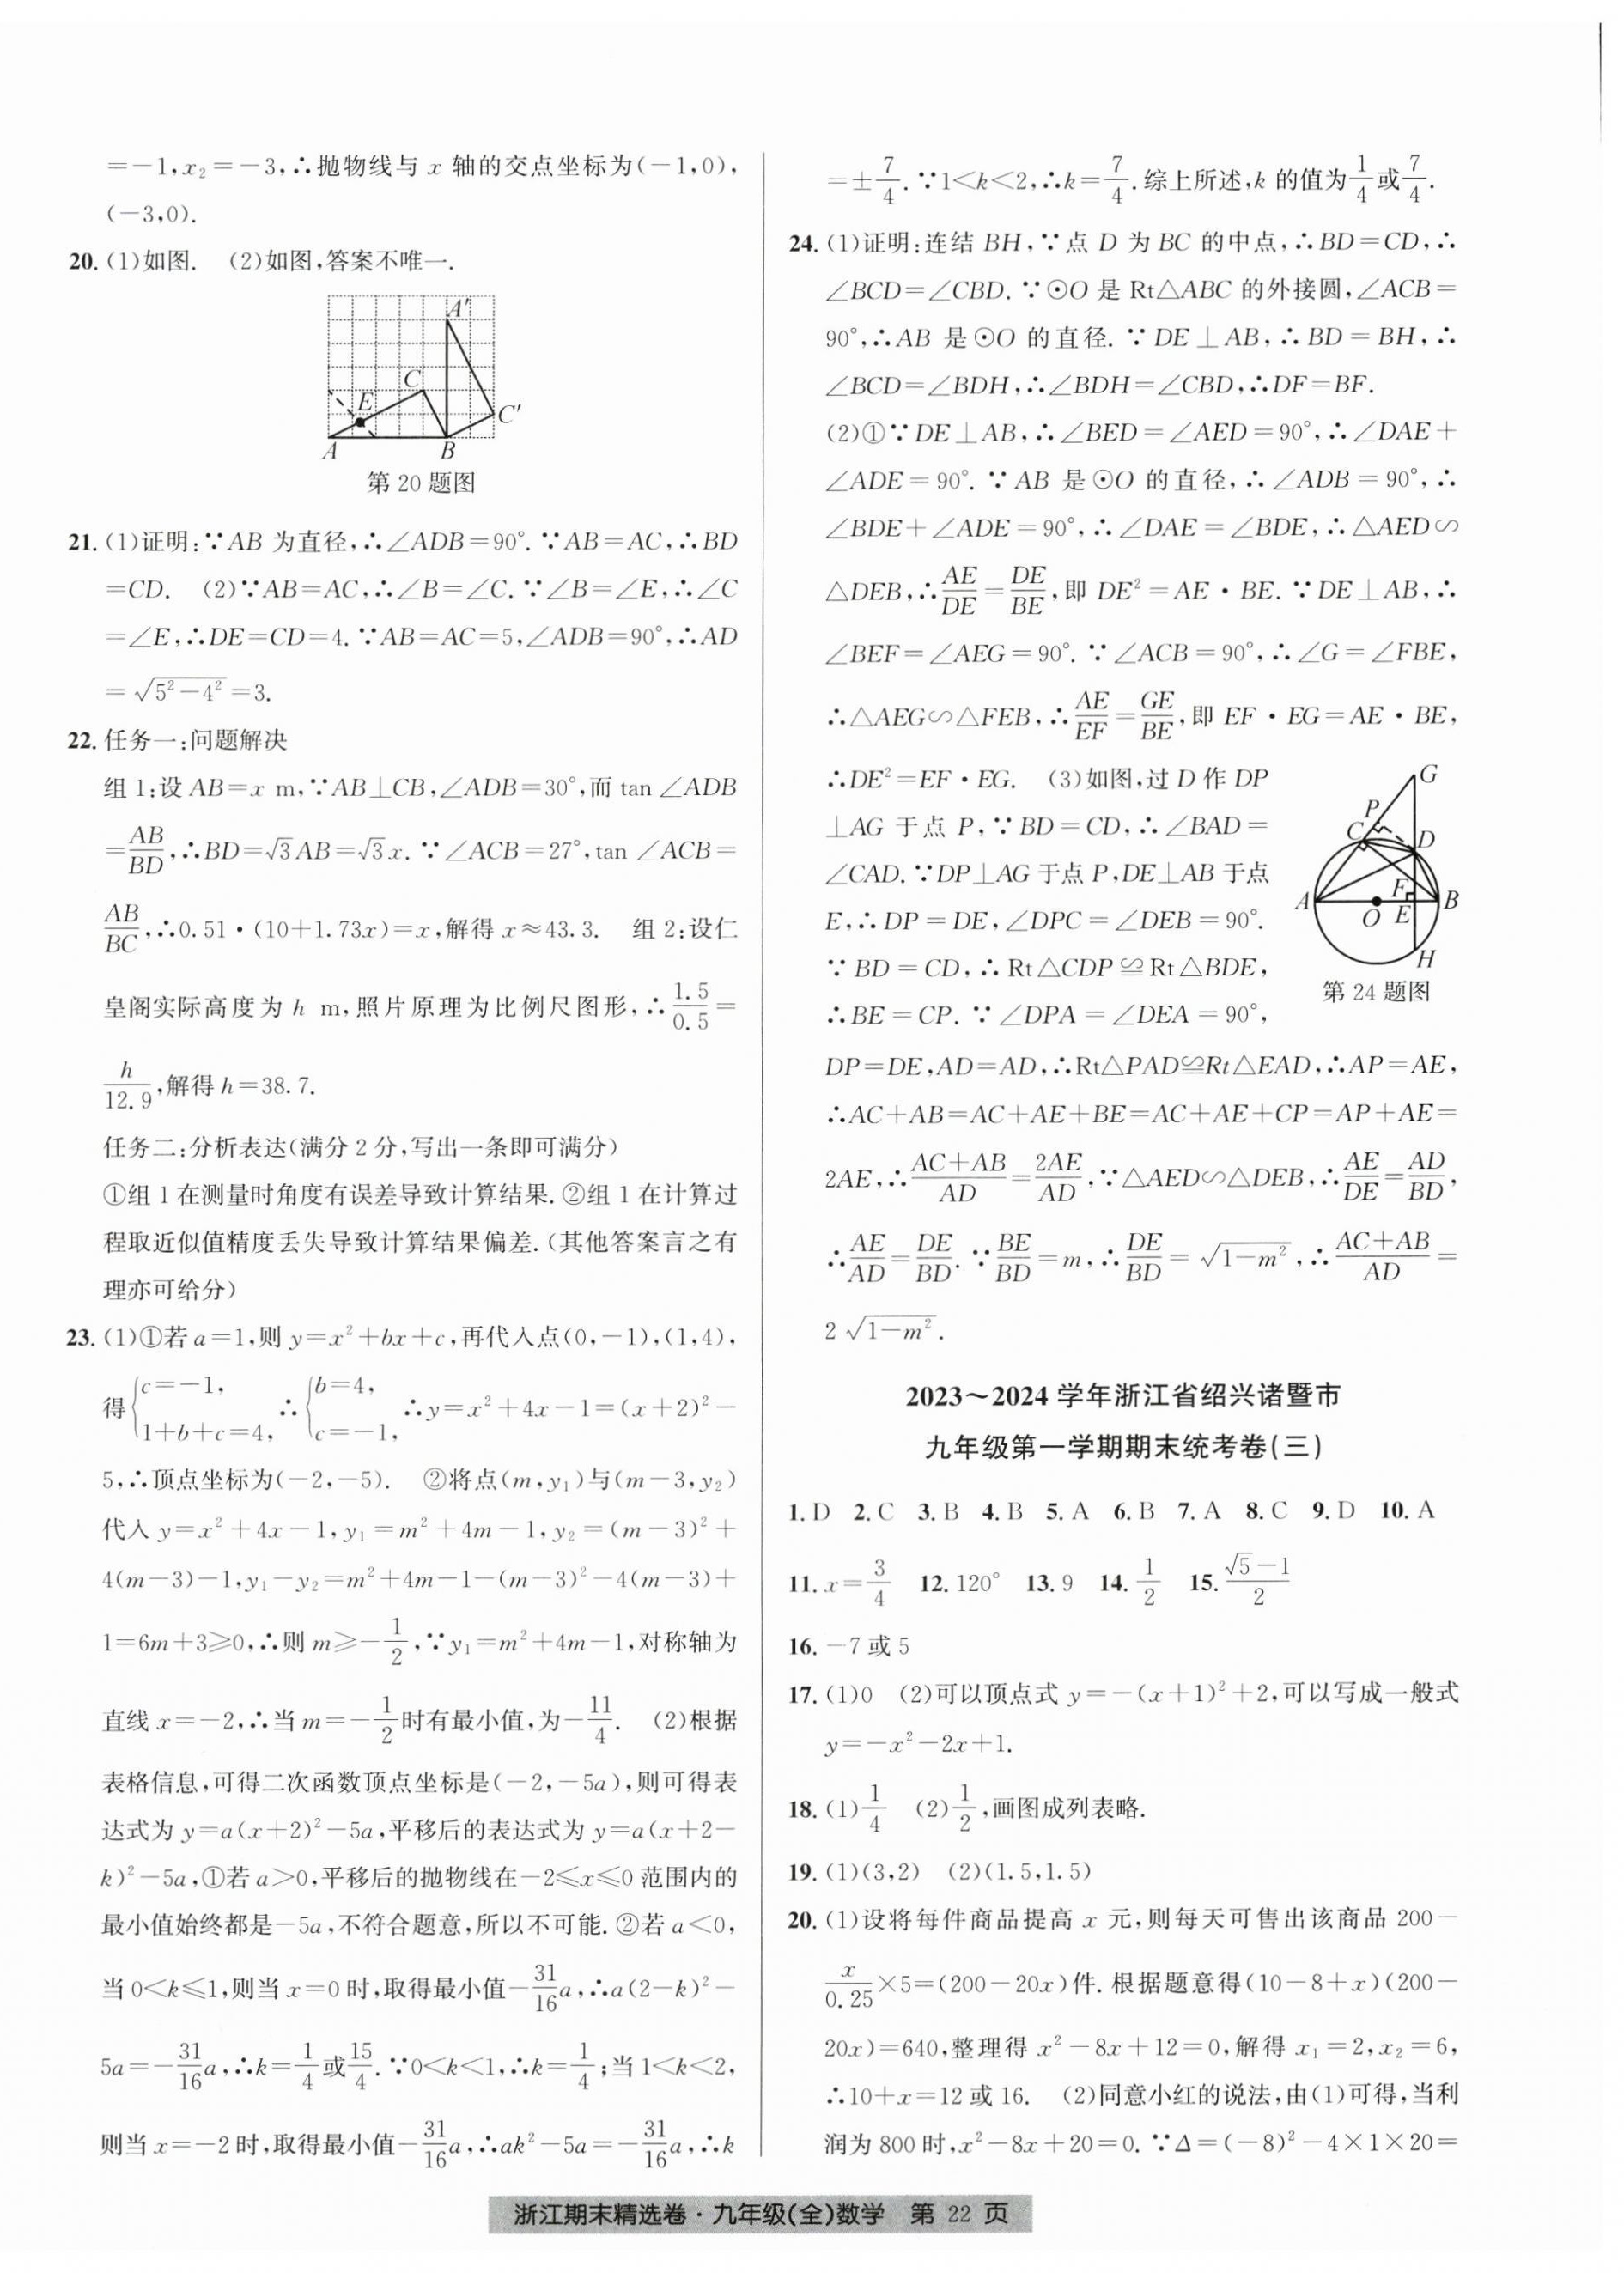 =-1,x₂=-3,∴抛物线与 x 轴的交点坐标为(-1,0),
(-3,0).
20. (1)如图. (2)如图,答案不唯一.
A′
C
E
C′
A
B
第 20 题图
21. (1)证明:∵AB 为直径,∴∠ADB=90°.∵AB=AC,∴BD
=CD. (2)∵AB=AC,∴∠B=∠C.∵∠B=∠E,∴∠C
=∠E,∴DE=CD=4.∵AB=AC=5,∠ADB=90°,∴AD
=√(5²-4²)=3.
22. 任务一:问题解决
组 1:设 AB=x m,∵AB⊥CB,∠ADB=30°,而 tan ∠ADB
=AB/BD,∴BD=√3AB=√3x.∵∠ACB=27°,tan ∠ACB=
AB/BC,∴0.51·(10+1.73x)=x,解得 x≈43.3. 组 2:设仁
皇阁实际高度为 h m,照片原理为比例尺图形,∴1.5/0.5=
h/12.9,解得 h=38.7.
任务二:分析表达(满分 2 分,写出一条即可满分)
①组 1 在测量时角度有误差导致计算结果.②组 1 在计算过
程取近似值精度丢失导致计算结果偏差.(其他答案言之有
理亦可给分)
23. (1)①若 a=1,则 y=x²+bx+c,再代入点(0,-1),(1,4),
得{c=-1, 1+b+c=4, ∴{b=4, c=-1, ∴y=x²+4x-1=(x+2)²-
5,∴顶点坐标为(-2,-5). ②将点(m,y₁)与(m-3,y₂)
代入 y=x²+4x-1,y₁=m²+4m-1,y₂=(m-3)²+
4(m-3)-1,y₁-y₂=m²+4m-1-(m-3)²-4(m-3)+
1=6m+3≥0,∴则 m≥-1/2,∵y₁=m²+4m-1,对称轴为
直线 x=-2,∴当 m=-1/2时有最小值,为-11/4. (2)根据
表格信息,可得二次函数顶点坐标是(-2,-5a),则可得表
达式为 y=a(x+2)²-5a,平移后的表达式为 y=a(x+2-
k)²-5a,①若 a>0,平移后的抛物线在-2≤x≤0 范围内的
最小值始终都是-5a,不符合题意,所以不可能.②若 a<0,
当 0<k≤1,则当 x=0 时,取得最小值-31/16a,∴a(2-k)²-
5a=-31/16a,∴k=1/4或15/4.∵0<k<1,∴k=1/4;当 1<k<2,
则当 x=-2 时,取得最小值-31/16a,∴ak²-5a=-31/16a,∴k
=±7/4.∵1<k<2,∴k=7/4.综上所述,k 的值为1/4或7/4.
24. (1)证明:连结 BH,∵点 D 为 BC 的中点,∴BD=CD,∴
∠BCD=∠CBD.∵⊙O 是 Rt△ABC 的外接圆,∠ACB=
90°,∴AB 是⊙O 的直径.∵DE⊥AB,∴BD=BH,∴
∠BCD=∠BDH,∴∠BDH=∠CBD,∴DF=BF.
(2)①∵DE⊥AB,∴∠BED=∠AED=90°,∴∠DAE+
∠ADE=90°.∵AB 是⊙O 的直径,∴∠ADB=90°,∴
∠BDE+∠ADE=90°,∴∠DAE=∠BDE,∴△AED∽
△DEB,∴AE/DE=DE/BE,即 DE²=AE·BE.∵DE⊥AB,∴
∠BEF=∠AEG=90°.∵∠ACB=90°,∴∠G=∠FBE,
∴△AEG∽△FEB,∴AE/EF=GE/BE,即 EF·EG=AE·BE,
∴DE²=EF·EG. (3)如图,过 D 作 DP
⊥AG 于点 P,∵BD=CD,∴∠BAD=
∠CAD.∵DP⊥AG 于点 P,DE⊥AB 于点
E,∴DP=DE,∠DPC=∠DEB=90°.
∵BD=CD,∴Rt△CDP≌Rt△BDE,
∴BE=CP.∵∠DPA=∠DEA=90°,
G
P
C
D
A
F
B
O
E
H
第 24 题图
DP=DE,AD=AD,∴Rt△PAD≌Rt△EAD,∴AP=AE,
∴AC+AB=AC+AE+BE=AC+AE+CP=AP+AE=
2AE,∴(AC+AB)/AD=2AE/AD,∵△AED∽△DEB,∴AE/DE=AD/BD,
∴AE/AD=DE/BD.∵BE/BD=m,∴DE/BD=√(1-m²),∴(AC+AB)/AD=
2√(1-m²).
2023～2024 学年浙江省绍兴诸暨市
九年级第一学期期末统考卷(三)
1. D 2. C 3. B 4. B 5. A 6. B 7. A 8. C 9. D 10. A
11. x=3/4 12. 120° 13. 9 14. 1/2 15. (√5-1)/2
16. -7 或 5
17. (1)0 (2)可以顶点式 y=-(x+1)²+2,可以写成一般式
y=-x²-2x+1.
18. (1)1/4 (2)1/2,画图成列表略.
19. (1)(3,2) (2)(1.5,1.5)
20. (1)设将每件商品提高 x 元,则每天可售出该商品 200-
x/0.25×5=(200-20x)件.根据题意得(10-8+x)(200-
20x)=640,整理得 x²-8x+12=0,解得 x₁=2,x₂=6,
∴10+x=12 或 16. (2)同意小红的说法,由(1)可得,当利
润为 800 时,x²-8x+20=0.∵Δ=(-8)²-4×1×20=
浙江期末精选卷·九年级(全)数学 第 22 页